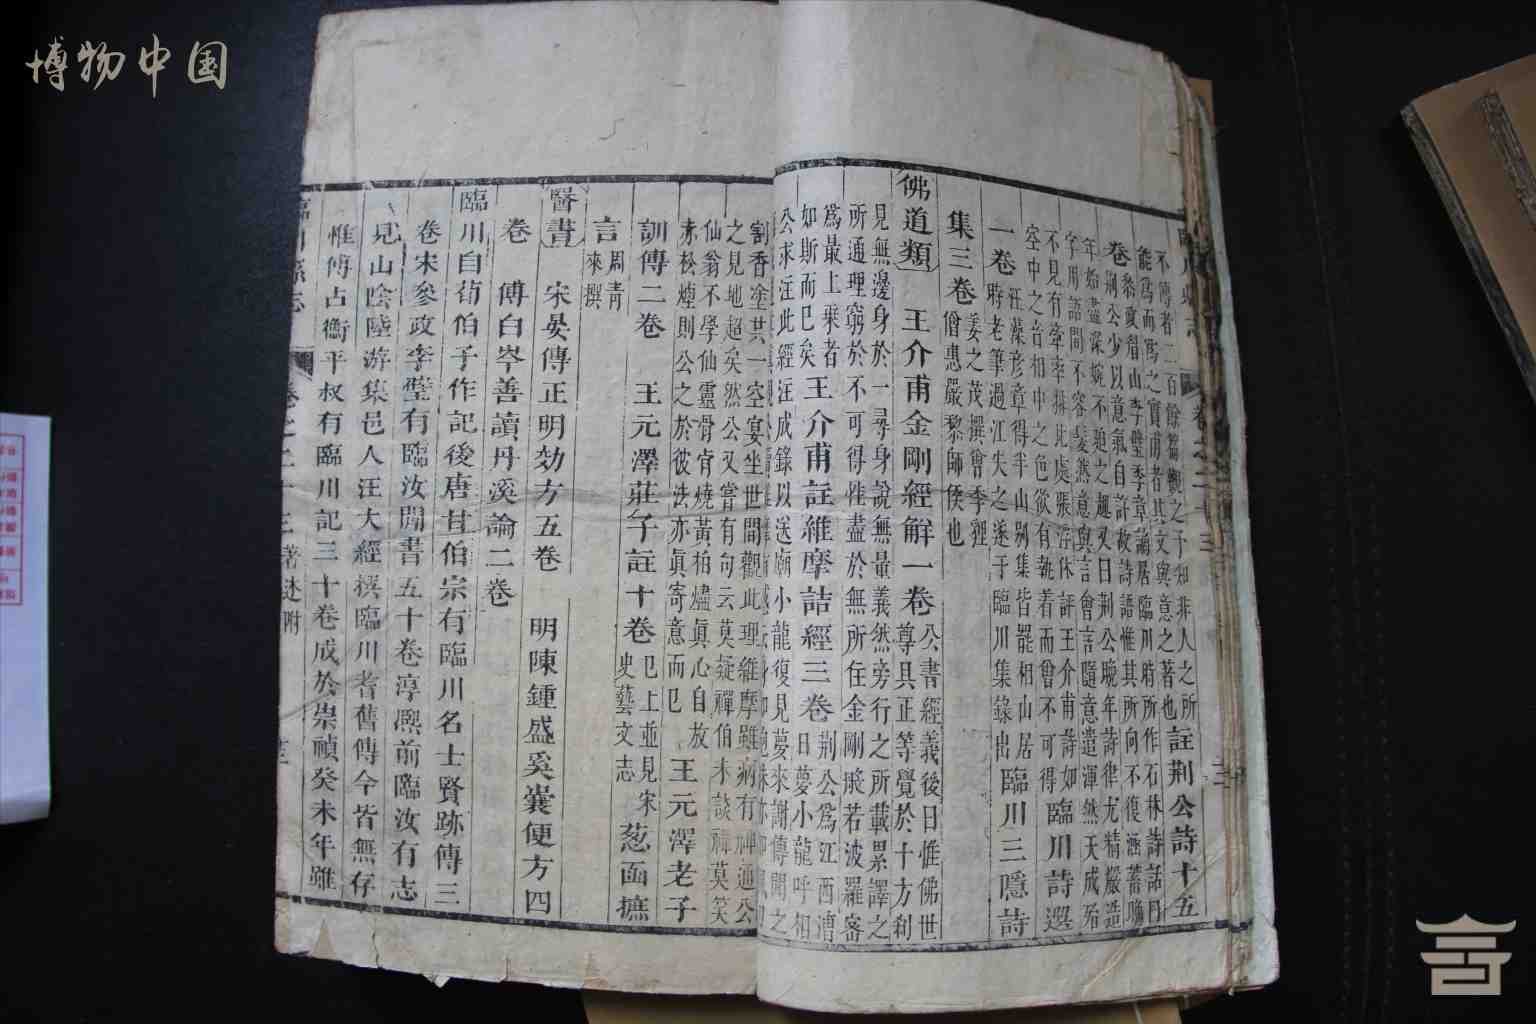 博物中国
不傳者二百餘篇觀之子知非人之所註荆公詩十五
能爲而爲之實甫者其文與意之著也石林詩話曰
卷荆公少以意氣自許故詩語惟其所向不復涵蓄
年始盡深婉不迫之趣又曰荆公晩年詩律尤精嚴造
字用語間不容髮然意與言會言隨意遣渾然天成殆
不見有牽率排比處張浮休評王介甫詩如臨川詩選
空中之音相中之色欲有執着而曾不可得
一卷汪藻彦章得半山别集皆罷相山居
時老筆過江失之遂于臨川集錄出臨川三隱詩
集三卷姜之茂撰曾季貍
僧惠嚴黎師侯也
佛道類 王介甫金剛經解一卷公書經義後曰惟佛世
尊具正等覺於十方刹
見無邊身於一尋身說無量義然旁行之所載累譯之
所通理窮於不可得性盡於無所住金剛般若波羅密
爲最上乗者王介甫註維摩詰經三卷荆公爲江西漕
如斯而已矣日夢小龍呼相
公求注此經注成錄以送廟小龍復見夢來謝傳聞之
割香塗共一空宴坐世間觀此理維摩雖病有神通公
之見地超矣然公又嘗有句云莫疑禪伯未談禪莫笑
仙翁不學仙靈骨肯燒黃柏燼眞心自放
赤松煙則公之於彼法亦眞寄意而已王元澤老子
訓傳二卷 王元澤莊子註十卷已上並見宋
史藝文志葱函摭
言周青
來撰
醫書 宋晏傅正明効方五卷 明陳鍾盛奚囊便方四
卷 傅白岑善讀丹溪論二卷
臨川自荀伯子作記後唐甘伯宗有臨川名士賢跡傳三
卷宋參政李壁有臨汝閒書五十卷淳熙前臨汝有志
見山陰陸游集邑人汪大經撰臨川耆舊傳今皆無存
惟傅占衡平叔有臨川記三十卷成於崇禎癸未年雖
臨川縣志 卷之二十三 著述附